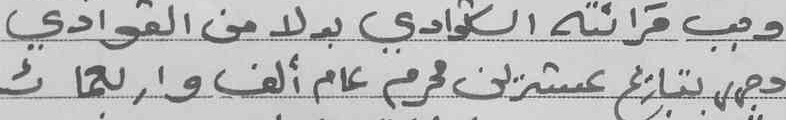 وجب قرائته الكوادي بدلا من القوادي
وجهر بتاريخ عشرين محرم عام ألف واربعمائ